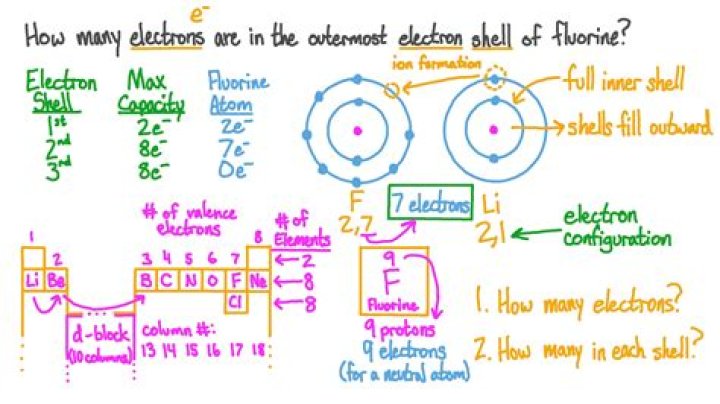 e⁻
How many electrons are in the outermost electron shell of fluorine?
Electron Shell
1st
2nd
3rd
Max Capacity
2e⁻
8e⁻
8e⁻
Fluorine Atom
2e⁻
7e⁻
0e⁻
ion formation
full inner shell
shells fill outward
F
2,7
7 electrons
Li
2,1
electron configuration
# of valence electrons
# of Elements
1
2
3 4 5 6 7
8
2
Li Be
B C N O F Ne
8
Cl
8
d-block
(10 columns)
column #:
13 14 15 16 17 18
9
F
Fluorine
9 protons
9 electrons
(for a neutral atom)
1. How many electrons?
2. How many in each shell?